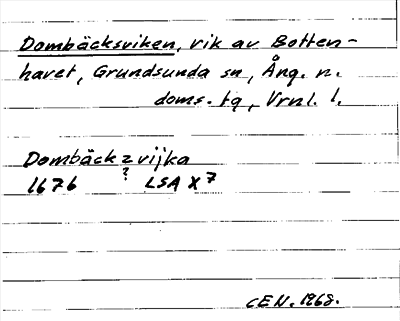 Dombäcksviken, vik av Botten-
havet, Grundsunda sn, Ång. n.
doms. tg, Vrnl. l.
Dombäckzvijka
?
1676 LSA X 7
CEN. 1968.